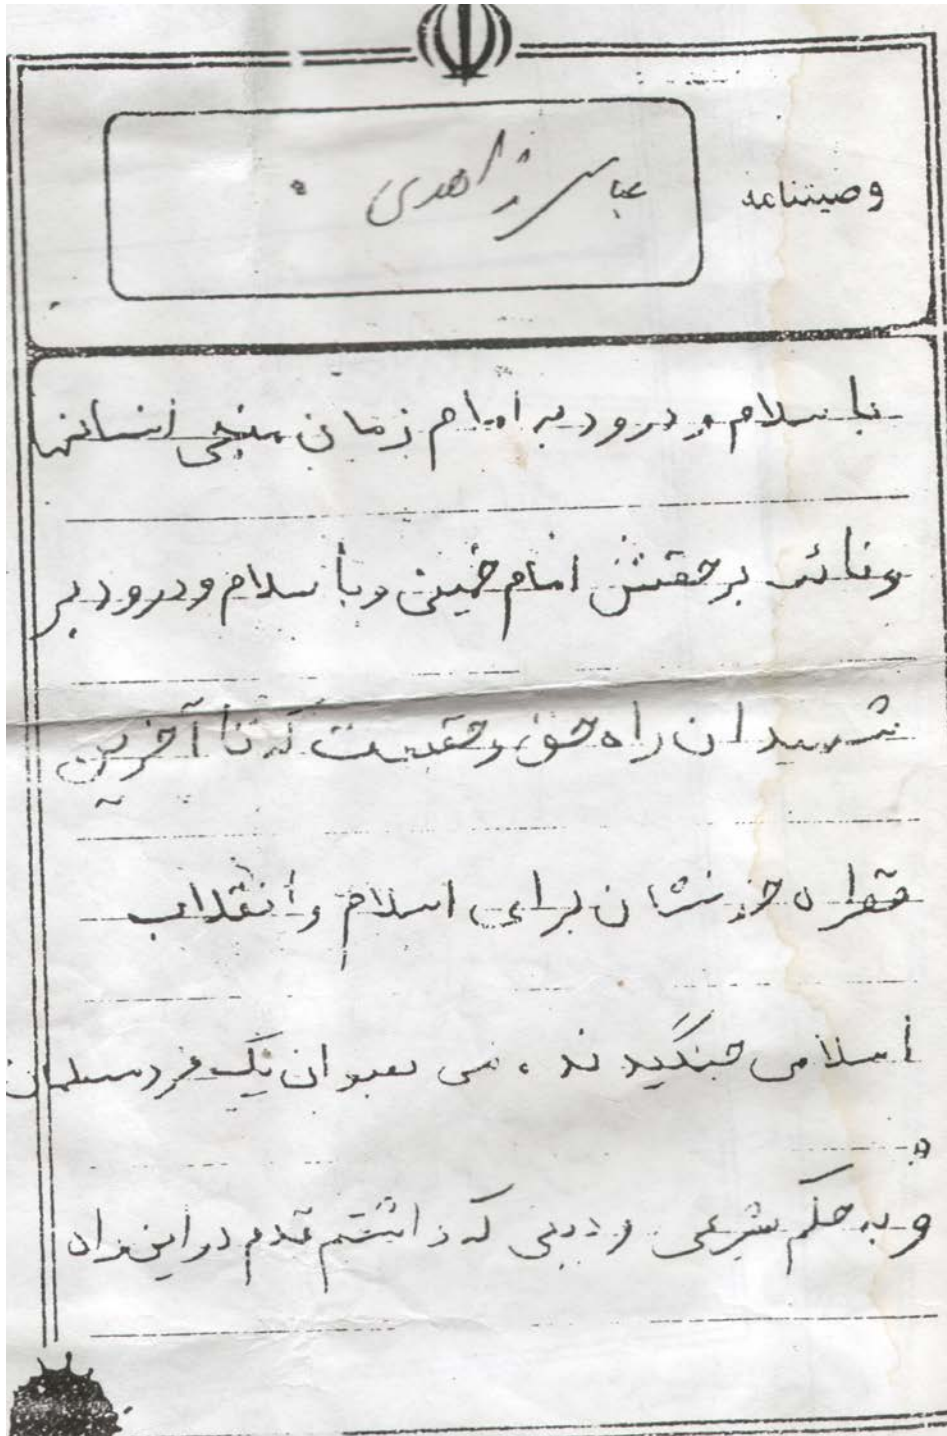 وصیتنامه
عباس زاهدی
با سلام و درود به امام زمان منجی انسانها
و نائب برحقش امام خمینی و با سلام و درود بر
شهیدان راه حق و حقیقت که تا آخرین
قطره خونشان برای اسلام و انقلاب
اسلامی جنگیدند ، من بعنوان یک فرد مسلمان
و به حکم شرعی و دینی که داشتم قدم در این راه